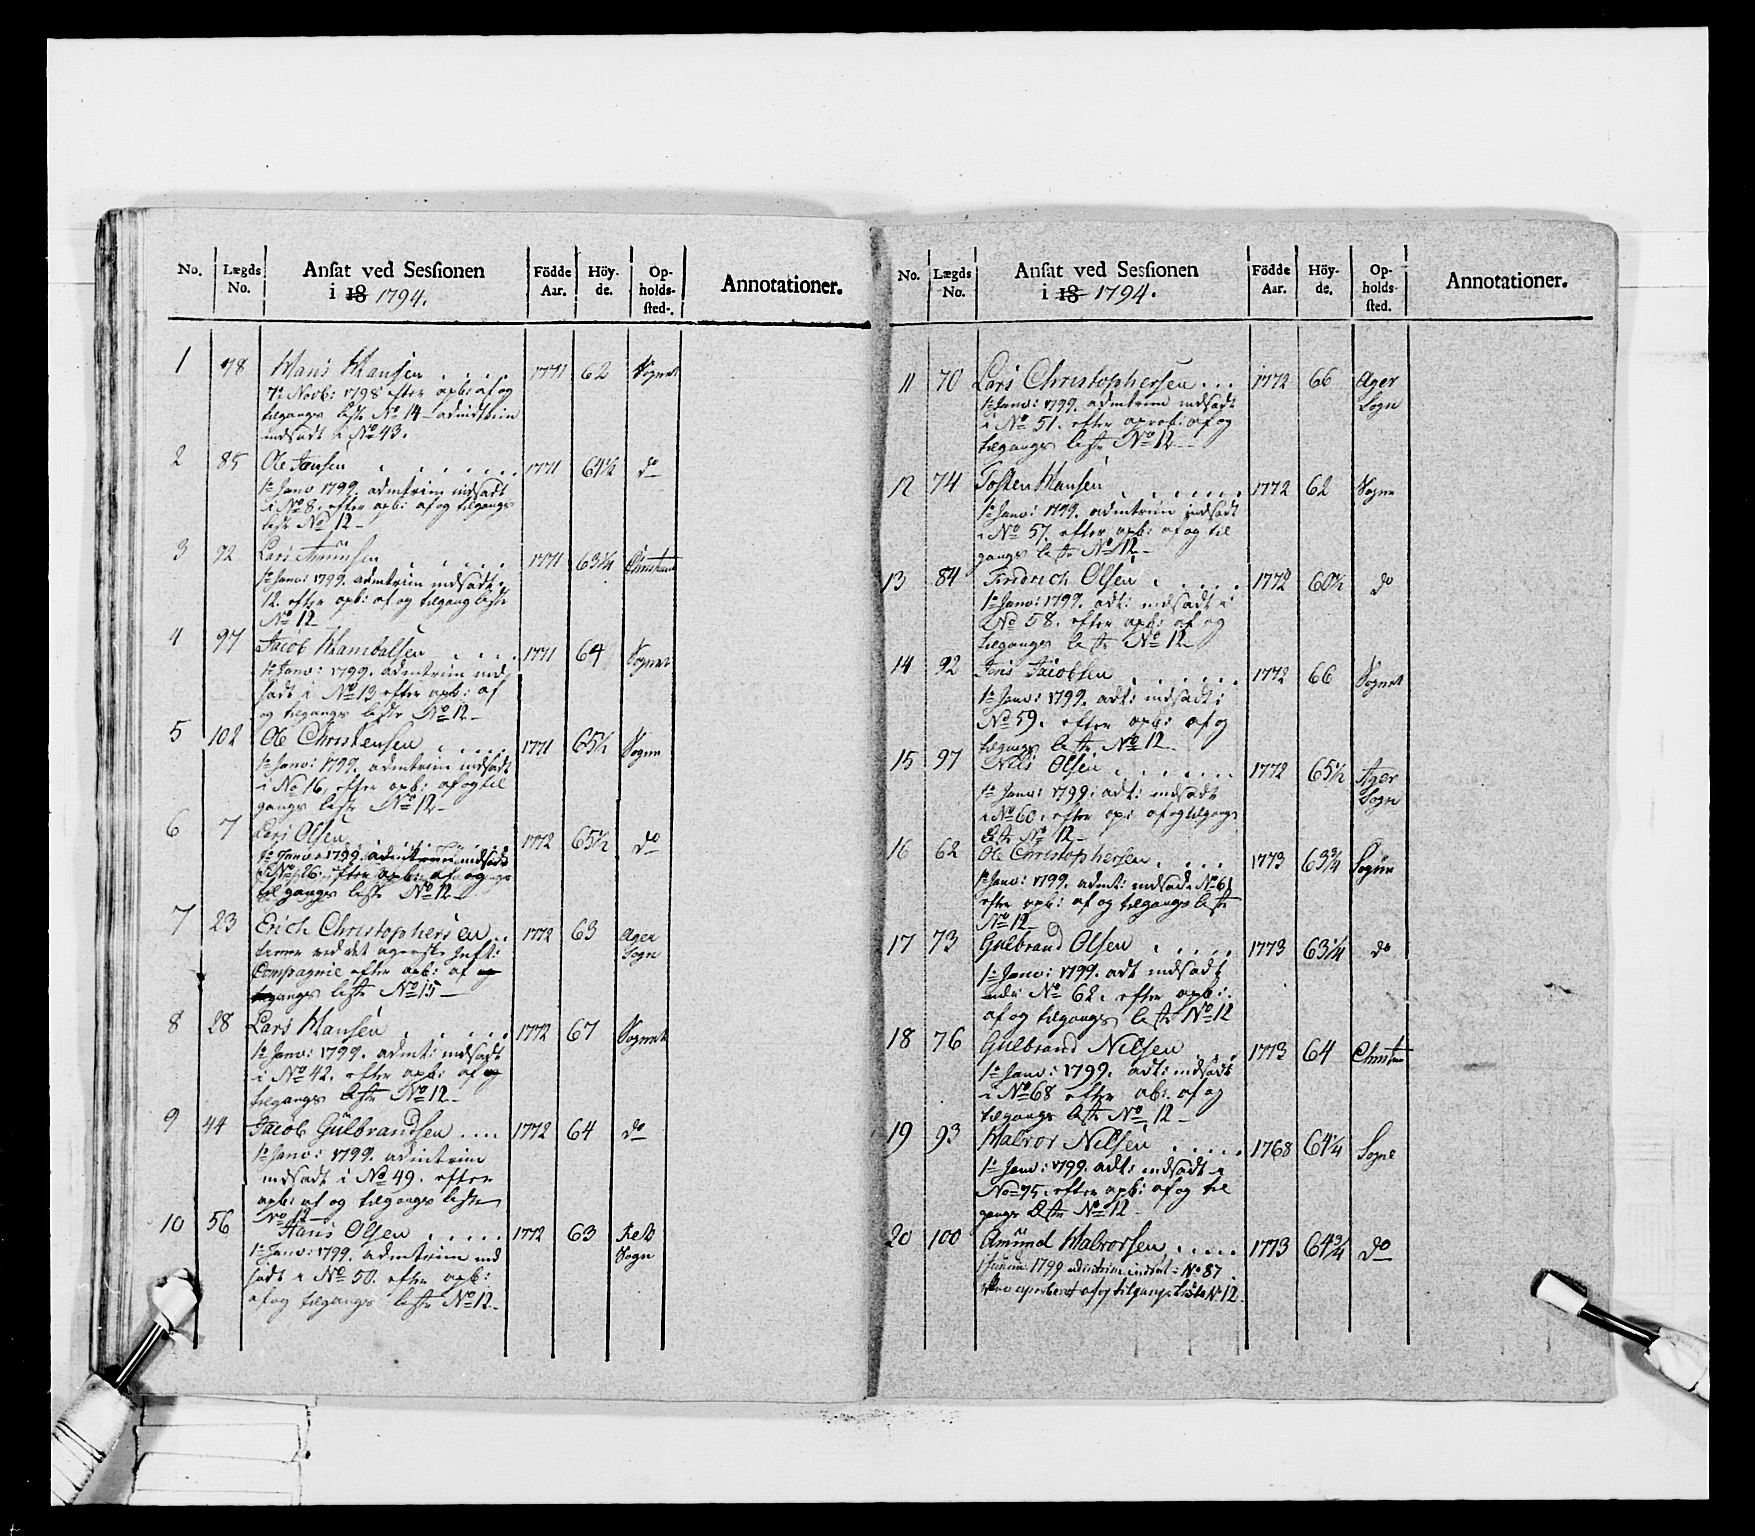 No. Lægds No. Anſat ved Sesſionen i 18 1794. Födde Aar. Höy-de. Op-holds-ſted-. Annotationer.
1 78 Hans Hansen . . . . . 1771 62 Sognet
7de Novb: 1798 efter apb: af og
tilgangs liste No 14 admidtrim
indsadt i No 43.
2 85 Ole Jensen . . . . . . 1771 64½ do
1te Janv 1799. admtrim indsadt
i No 8. efter apb: af og tilgangs
liste No 12
3 92 Lars Amunsen . . . . . 1771 63¼ Christiania
1te Janv: 1799. admtrim indsadt i
12. efter apb: af og tilgang liste
No 12
4 97 Jacob Hambolsen . . . . 1771 64 Sognet
1te Janv: 1799. admtrim ind
sadt i No 13 efter apb: af
og tilgangs liste No 12
5 102 Ole Christensen . . . . . 1771 65½ Sogne
1te Janv: 1799. admtrim indsadt
i No 16, efter apb: af og til
gangs liste No 12
6 7 Lars Olsen . . . . . 1772 65½ do
1te Janv: 1799. admtrim indsadt
i No 26. efter apb: af og
tilgangs liste No 12
7 23 Erich Christophersen . . 1772 63 Ager Sogn
ved det agerske
Compagnie efter apb: af og
tilgangs liste No 15
8 28 Lars Hansen . . . . . 1772 67 Sognet
1te Janv: 1799. admt: indsadt
i No 42. efter apb: af og
tilgangs liste No 12
9 44 Jacob Gulbrandsen . . . . 1772 64 do
1te Janv: 1799. admtrim
indsadt i No 49. efter
apb: af og tilgangs liste
No 12
10 56 Hans Olsen . . . . . 1772 63 Sogn
1te Janv: 1799. admtrim ind
sadt i No 50. efter apb:
af og tilgangs liste No 12
No. Lægds No. Anſat ved Sesſionen i 18 1794. Födde Aar. Höy-de. Op-holds-ſted. Annotationer.
11 70 Lars Christophersen . . . 1772 66 Ager Sogn
1te Janv: 1799. admtrim indsadt
i No 51. efter aprob: af og
tilgangs liste No 12
12 74 Tosten Hansen . . . . . . 1772 62 Sogne
1te Janv: 1799. admtrim indsadt
i No 57. efter apb: af og til
gangs liste No 12
13 84 Fredrich Olsen . . . . . 1772 60½ do
1te Janv: 1799. adt: indsadt i
No 58. efter apb: af og
tilgangs liste No 12
14 92 Jens Jacobsen . . . . . . 1772 66 Sognet
1te Janv: 1799. adt: indsadt i
No 59. efter apb: af og
tilgangs liste No 12
15 97 Nils Olsen . . . . . . . 1772 65½ Ager Sogn
1te Janv: 1799. adt: indsadt
i No 60. efter ap: af og tilgangs
liste No 12
16 62 Ole Christophersen . . . . 1773 63¾ Sogne
1te Janv: 1799. admt: indsadt No 61
efter apb: af og tilgangs liste
No 12
17 73 Gulbrand Olsen . . . . . 1773 63¼ do
1te Janv: 1799. adt indsadt
No 62. efter apb:
af og tilgangs liste No 12
18 76 Gulbrand Nilsen . . . 1773 64 Christiania
1te Janv: 1799. adt: indsadt
i No 68 efter ab: af og
tilgangs liste No 12
19 93 Halvor Nilsen . . . . . 1768 64¼ Sogne
1te Janv: 1799. adt: indsadt i
No 75. efter apb: af og til
gangs liste No 12
20 100 Amund Halvorsen . . . . . 1773 64¾ do
1 Januar 1799 admtrim indsat i No 87
aproberet af og tilgangs Liste No 12